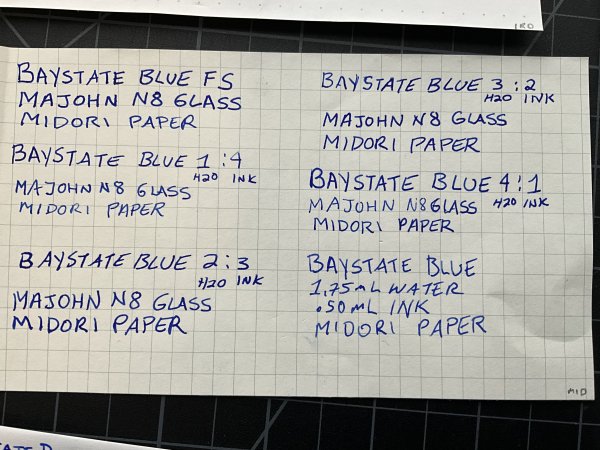 IRO
BAYSTATE BLUE FS
MAJOHN N8 GLASS
MIDORI PAPER
BAYSTATE BLUE 1:4
H2O INK
MAJOHN N8 GLASS
MIDORI PAPER
BAYSTATE BLUE 2:3
H2O INK
MAJOHN N8 GLASS
MIDORI PAPER
BAYSTATE BLUE 3:2
H2O INK
MAJOHN N8 GLASS
MIDORI PAPER
BAYSTATE BLUE 4:1
H2O INK
MAJOHN N8 GLASS
MIDORI PAPER
BAYSTATE BLUE
1.75mL WATER
.50mL INK
MIDORI PAPER
MID